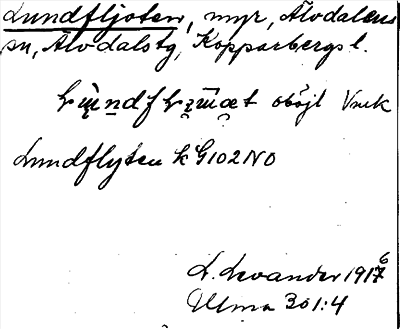 Lundfljoten, myr, Älvdalens
sn, Älvdals tg, Kopparbergs l.
obojl Vnek
Lundflyten k G102NO
L. Levander 1916
Ulma 301:4